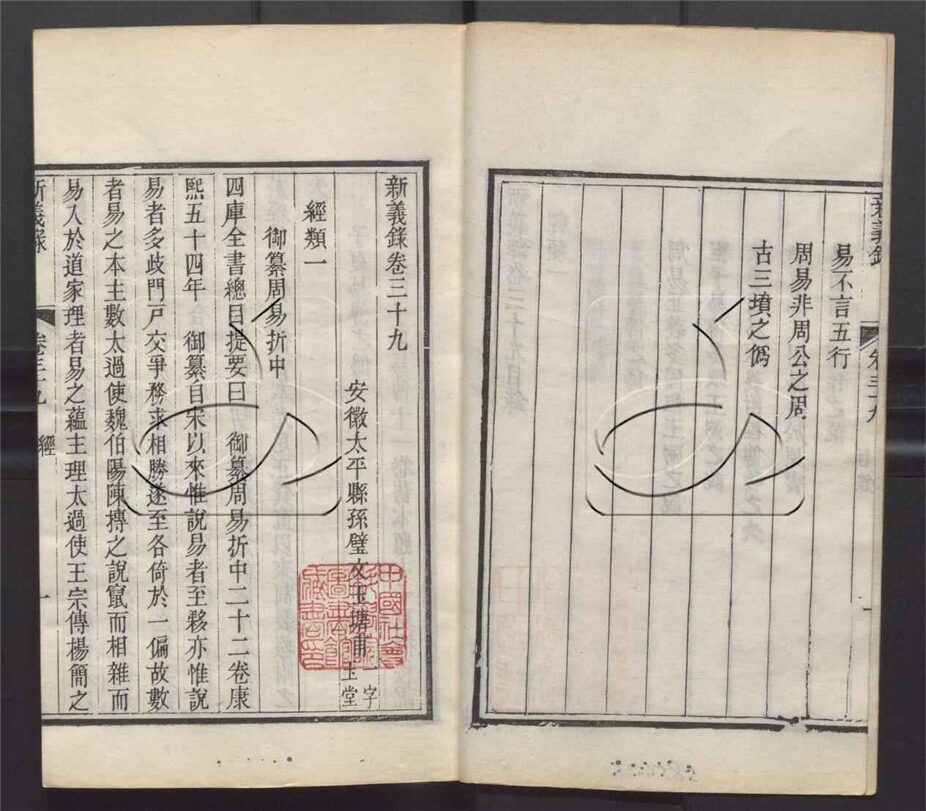 易不言五行
周易非周公之周
古三墳之僞
新義錄卷三十九
安徽太平縣孫璧文玉塘甫
字
玉堂
經類一
御纂周易折中
四庫全書總目提要曰 御纂周易折中二十二卷康
熙五十四年 御纂自宋以來惟說易者至夥亦惟說
易者多歧門戸交爭務求相勝遂至各倚於一偏故數
者易之本主數太過使魏伯陽陳摶之說竄而相雜而
易入於道家理者易之蘊主理太過使王宗傳楊簡之
新義錄 卷三十九 經 一